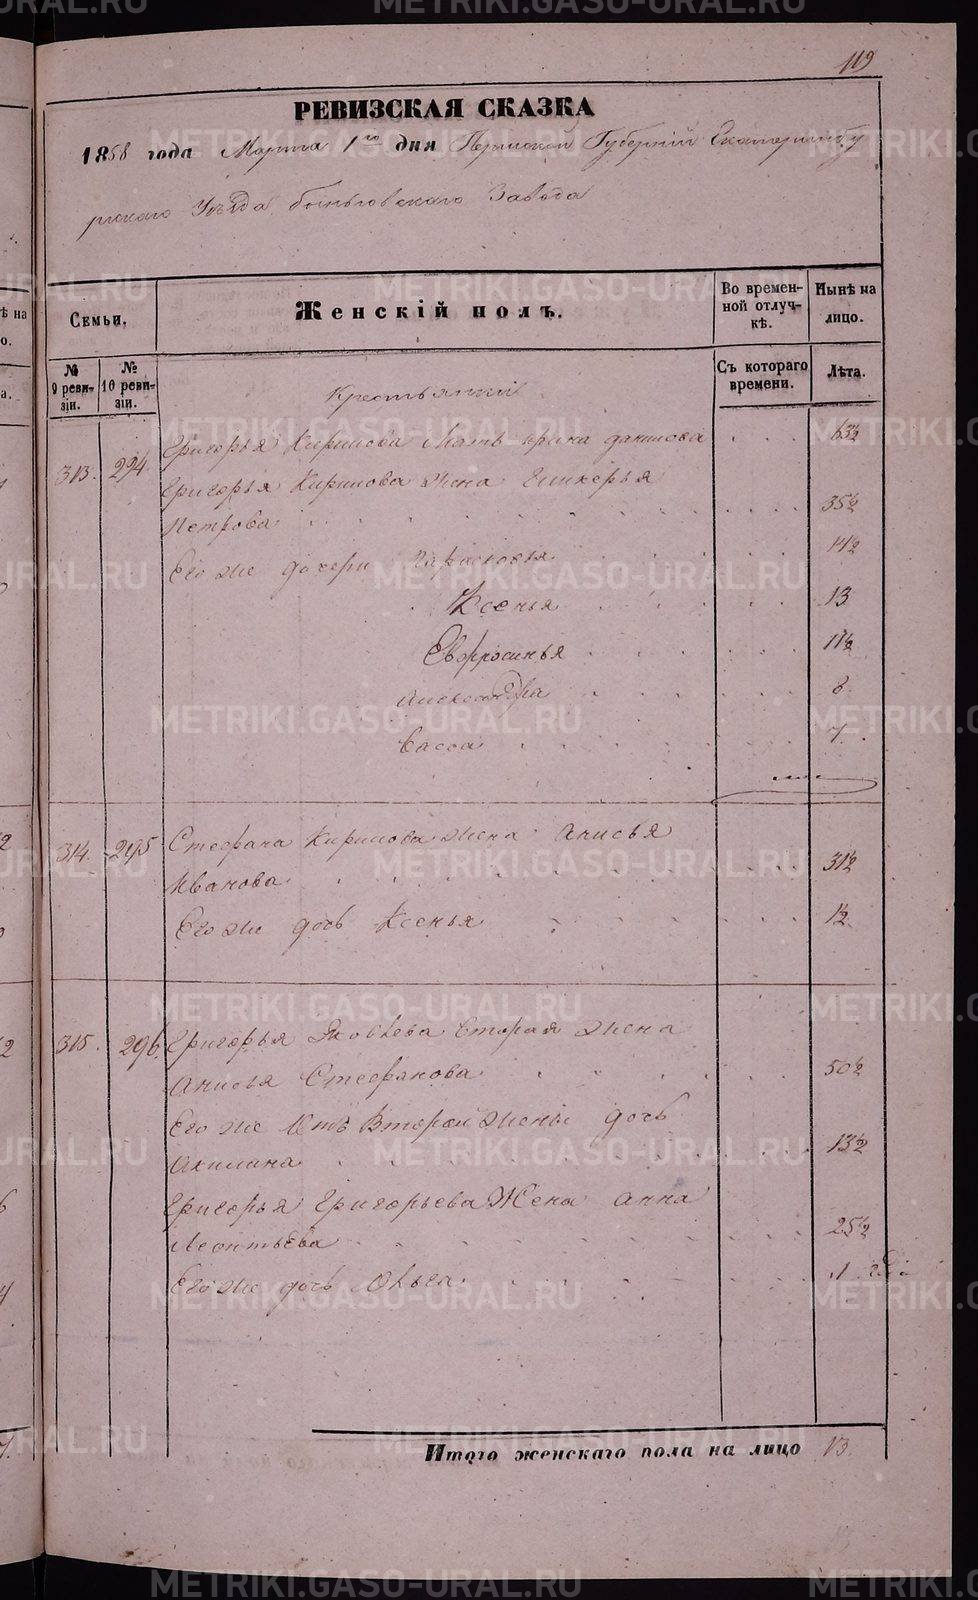 119
РЕВИЗСКАЯ СКАЗКА
1858 года Марта 1го дня Пермской Губернiи Екатеринбу
ргскаго Уѣзда Быньговскаго Завода
Семьи.
Женскій полъ.
Во времен-
ной отлуч-
кѣ.
Нынѣ на
лицо.
№
9 реви-
зіи.
№
10 реви-
зіи.
Съ котораго
времени.
Лѣта.
Крестьянки
Григорья Кирилова Мать Ирина Данилова 63½
313. 294. Григорья Кирилова Жена Гликерья
Петрова 35½
Его же дочери Парасковья 14½
Ксенья 13
Евфросинья 11½
Александра 8
Васса 7
314. 295 Стефана Кирилова Жена Анисья
Иванова 31½
Его же дочь Ксенья 1½
315. 296. Григорья Яковлева Вторая Жена
Анисья Стефанова 50½
Его же Отъ Второй Жены дочь
Акилина 13½
Григорья Григорьева Жена Анна
Леонтьева 25½
Его же дочь Ольга 1
Итого женскаго пола на лицо 13.
METRIKI.GASO-URAL.RU